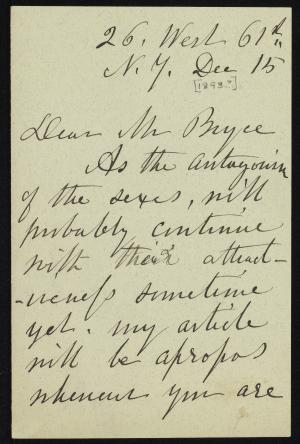 26. West 61st
N.Y. Dec 15
[1893?]
Dear Mr Bryce
As the antagonism
of the sexes, will
probably continue
with their attract-
-iveness sometime
yet. my article
will be apropos
whenever you are